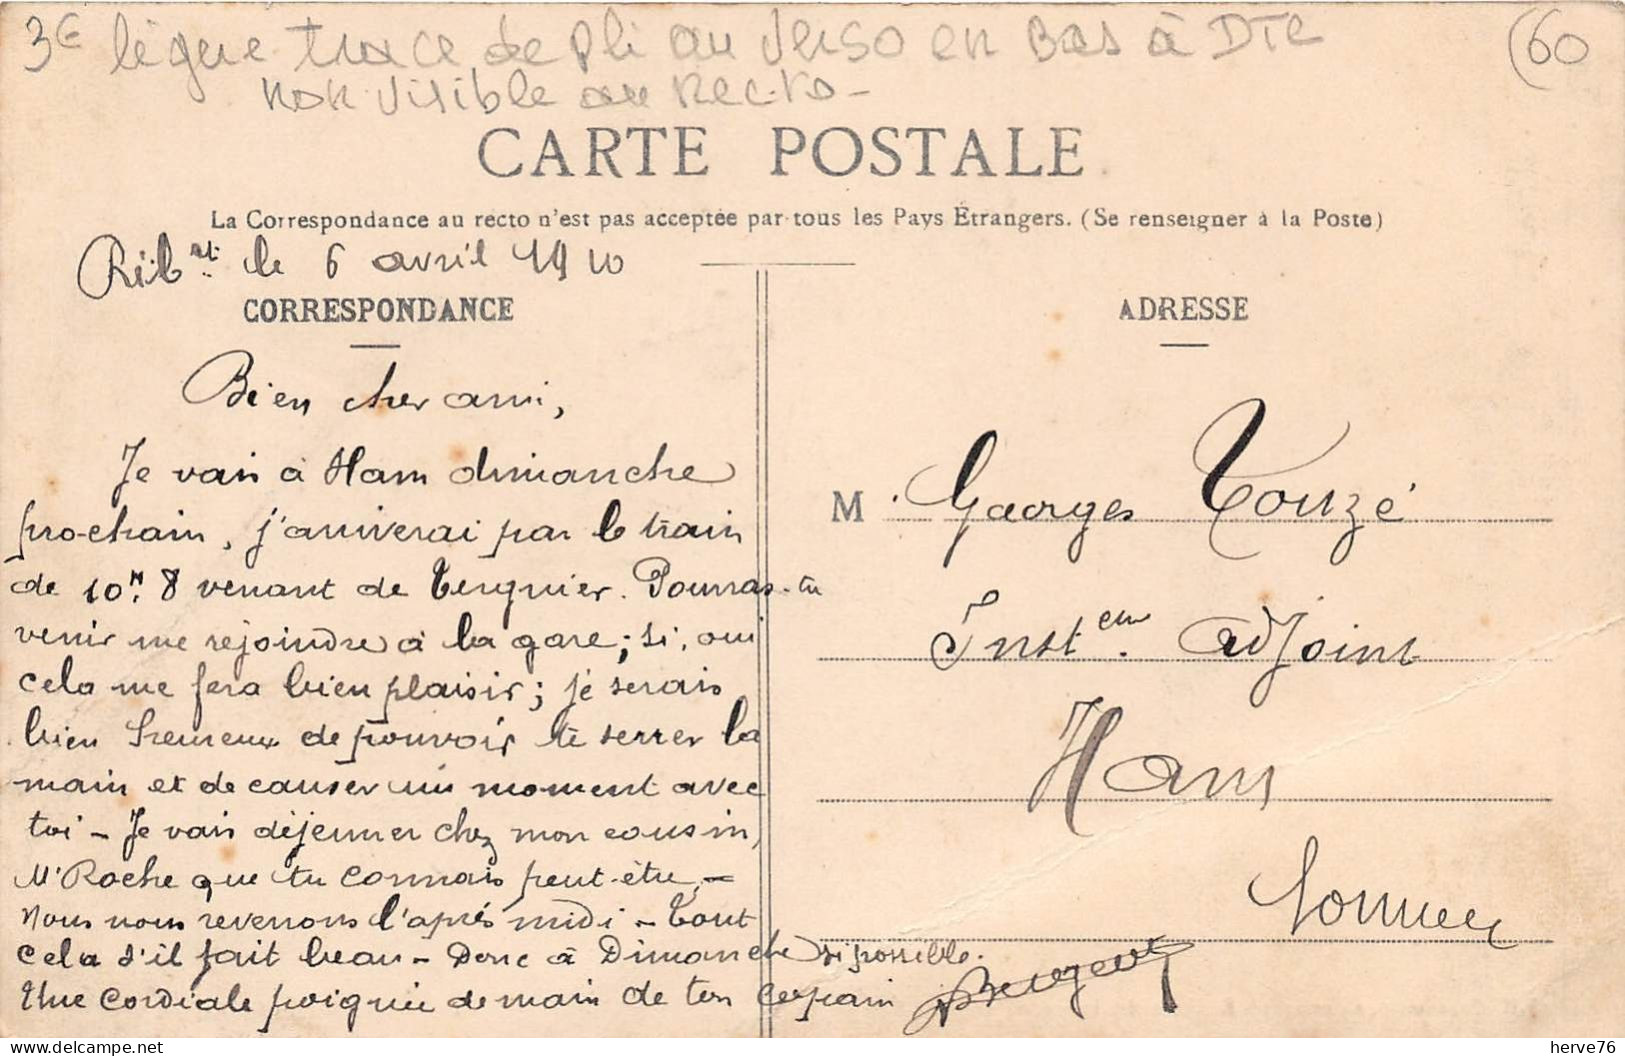 3€ légere trace de pli au verso en Bas à DTe (60
non visible au recto -
CARTE POSTALE
La Correspondance au recto n'est pas acceptée par tous les Pays Étrangers. (Se renseigner à la Poste)
Rib.nt le 6 avril 1910
CORRESPONDANCE
Bien cher ami,
Je vais à Ham dimanche
prochain, j'arriverai par le train
de 10H. 8 venant de Tergnier. Pourras-tu
venir me rejoindre à la gare; si, oui
cela me fera bien plaisir; je serais
bien heureux de pouvoir te serrer la
main et de causer un moment avec
toi - Je vais déjeuner chez mon cousin,
Mr Roche que tu connais peut-être, -
Nous nous reverrons l'après midi - Tout
cela s'il fait beau - Donc à Dimanche si possible.
Une cordiale poignée de main de ton copain
ADRESSE
M. Georges Touzé
Inst.eur adjoint
Ham
Somme
herve76